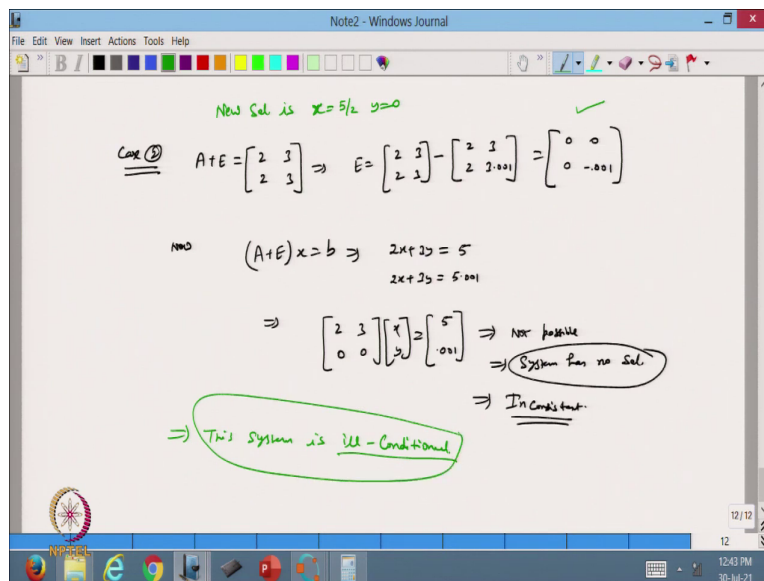 Note2 - Windows Journal
File Edit View Insert Actions Tools Help
B I
New Sol is x=5/2 y=0
Case ② A+E = [2 3 2 3] ⇒ E = [2 3 2 3] - [2 3 2 3.001] = [0 0 0 -.001]
Now (A+E)x=b ⇒ 2x+3y = 5
2x+3y = 5.001
⇒ [2 3 0 0] [x y] = [5 .001] ⇒ Not possible
⇒ System has no Sol.
⇒ Inconsistent.
⇒ This System is ill-Conditioned
12/12
12
NPTEL
12:43 PM
30-Jul-21